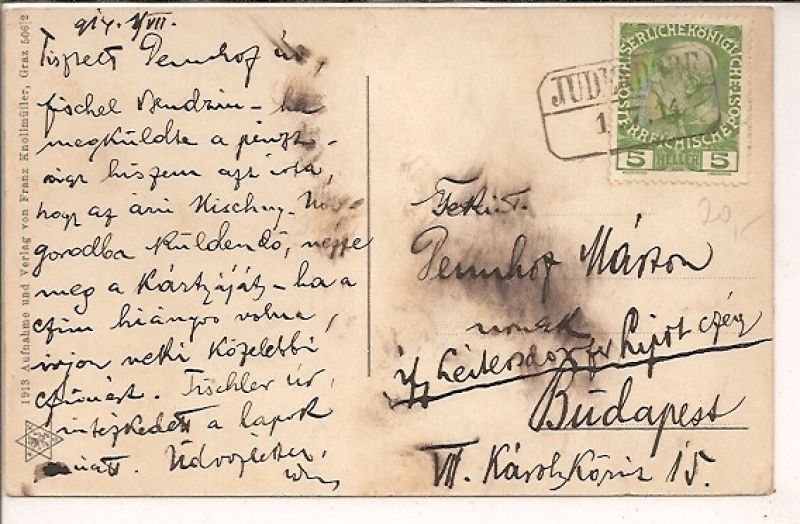 914. 1/VII.
Tisztelt Pennhof úr,
fischel Bendzin – ha
megküldte a pénzt –
úgy hiszem azt irta,
hogy az árú Nischny-Now-
gorodba küldendő, nézze
meg a kártyáját – ha a
czim hiányos volna,
irjon neki közelebbi
czimért. Tischler úr,
intézkedett a lapok
miatt. Üdvözlettel,
1913 Aufnahme und Verlag von Franz Knollmüller, Graz 506/2
KAISERLICHE KÖNIGLICHE
ÖSTERREICHISCHE POST
5 HELLER 5
JUDENDORF
14
20,-
Tekint.
Pennhof Márton
urnak
ifj Leitersdorfer Lipót czég
Budapest
VII. Károly Körút 15.